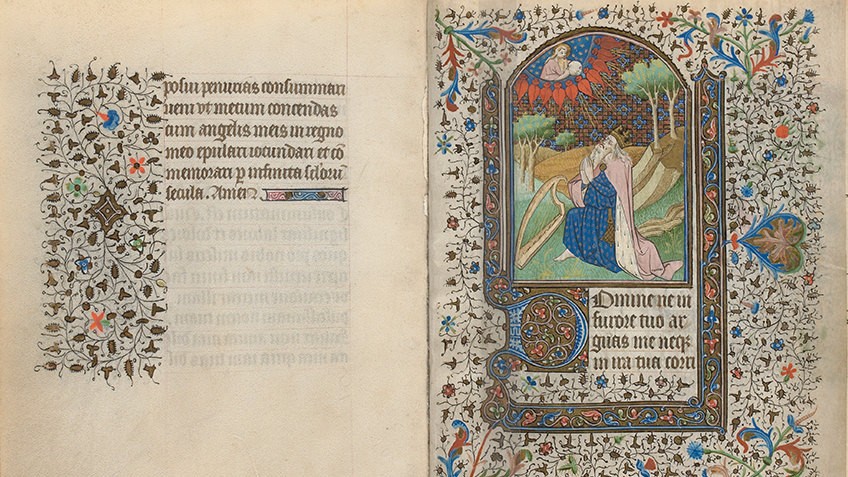 posui penurias consummari
veni vt mecum concendas
cum angelis meis in regno
meo epulari iocundari et cō
memorari p infinita sclorū
secula. Amen
Domine ne in
furore tuo ar
guas me neqꝫ
in ira tua corri